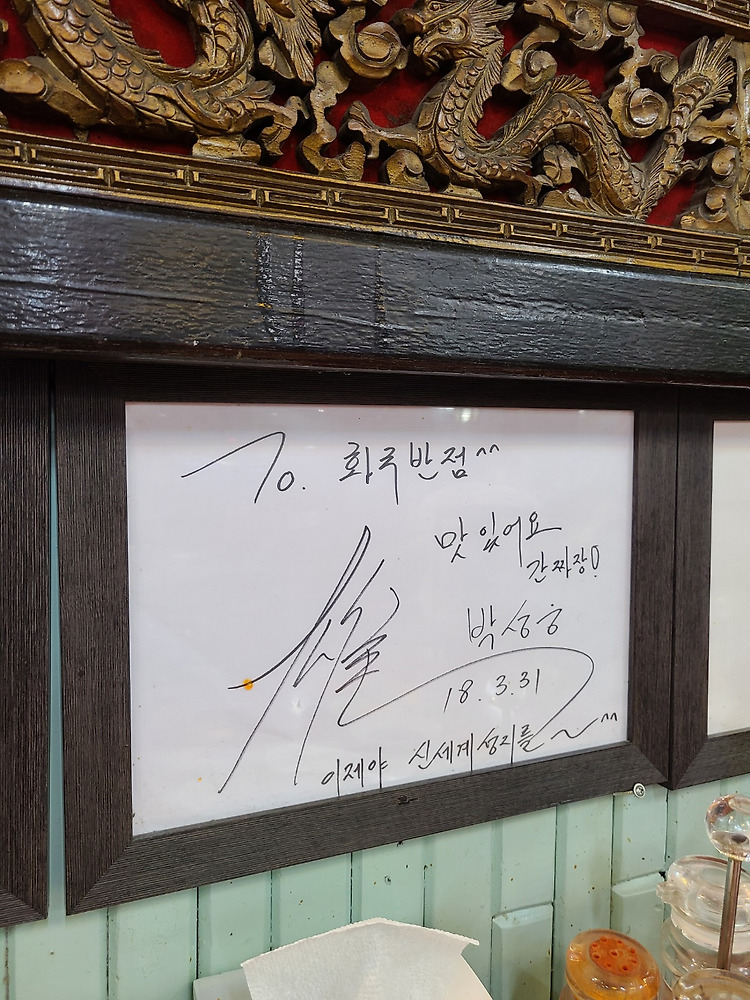 To. 화국반점^^
맛있어요
간짜장!
박성웅
18. 3. 31
이제야 신세계성지를~^^